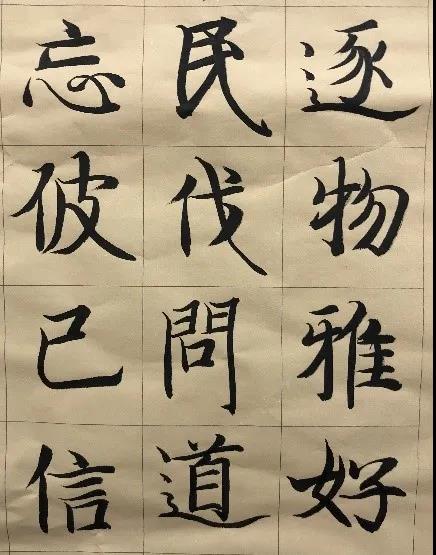 逐物雅好
民伐問道
忘彼已信